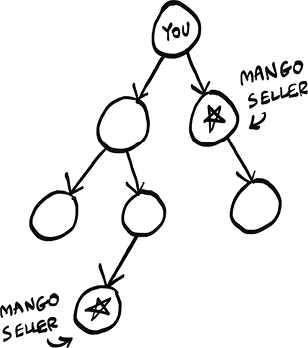 YOU
MANGO
SELLER
MANGO
SELLER